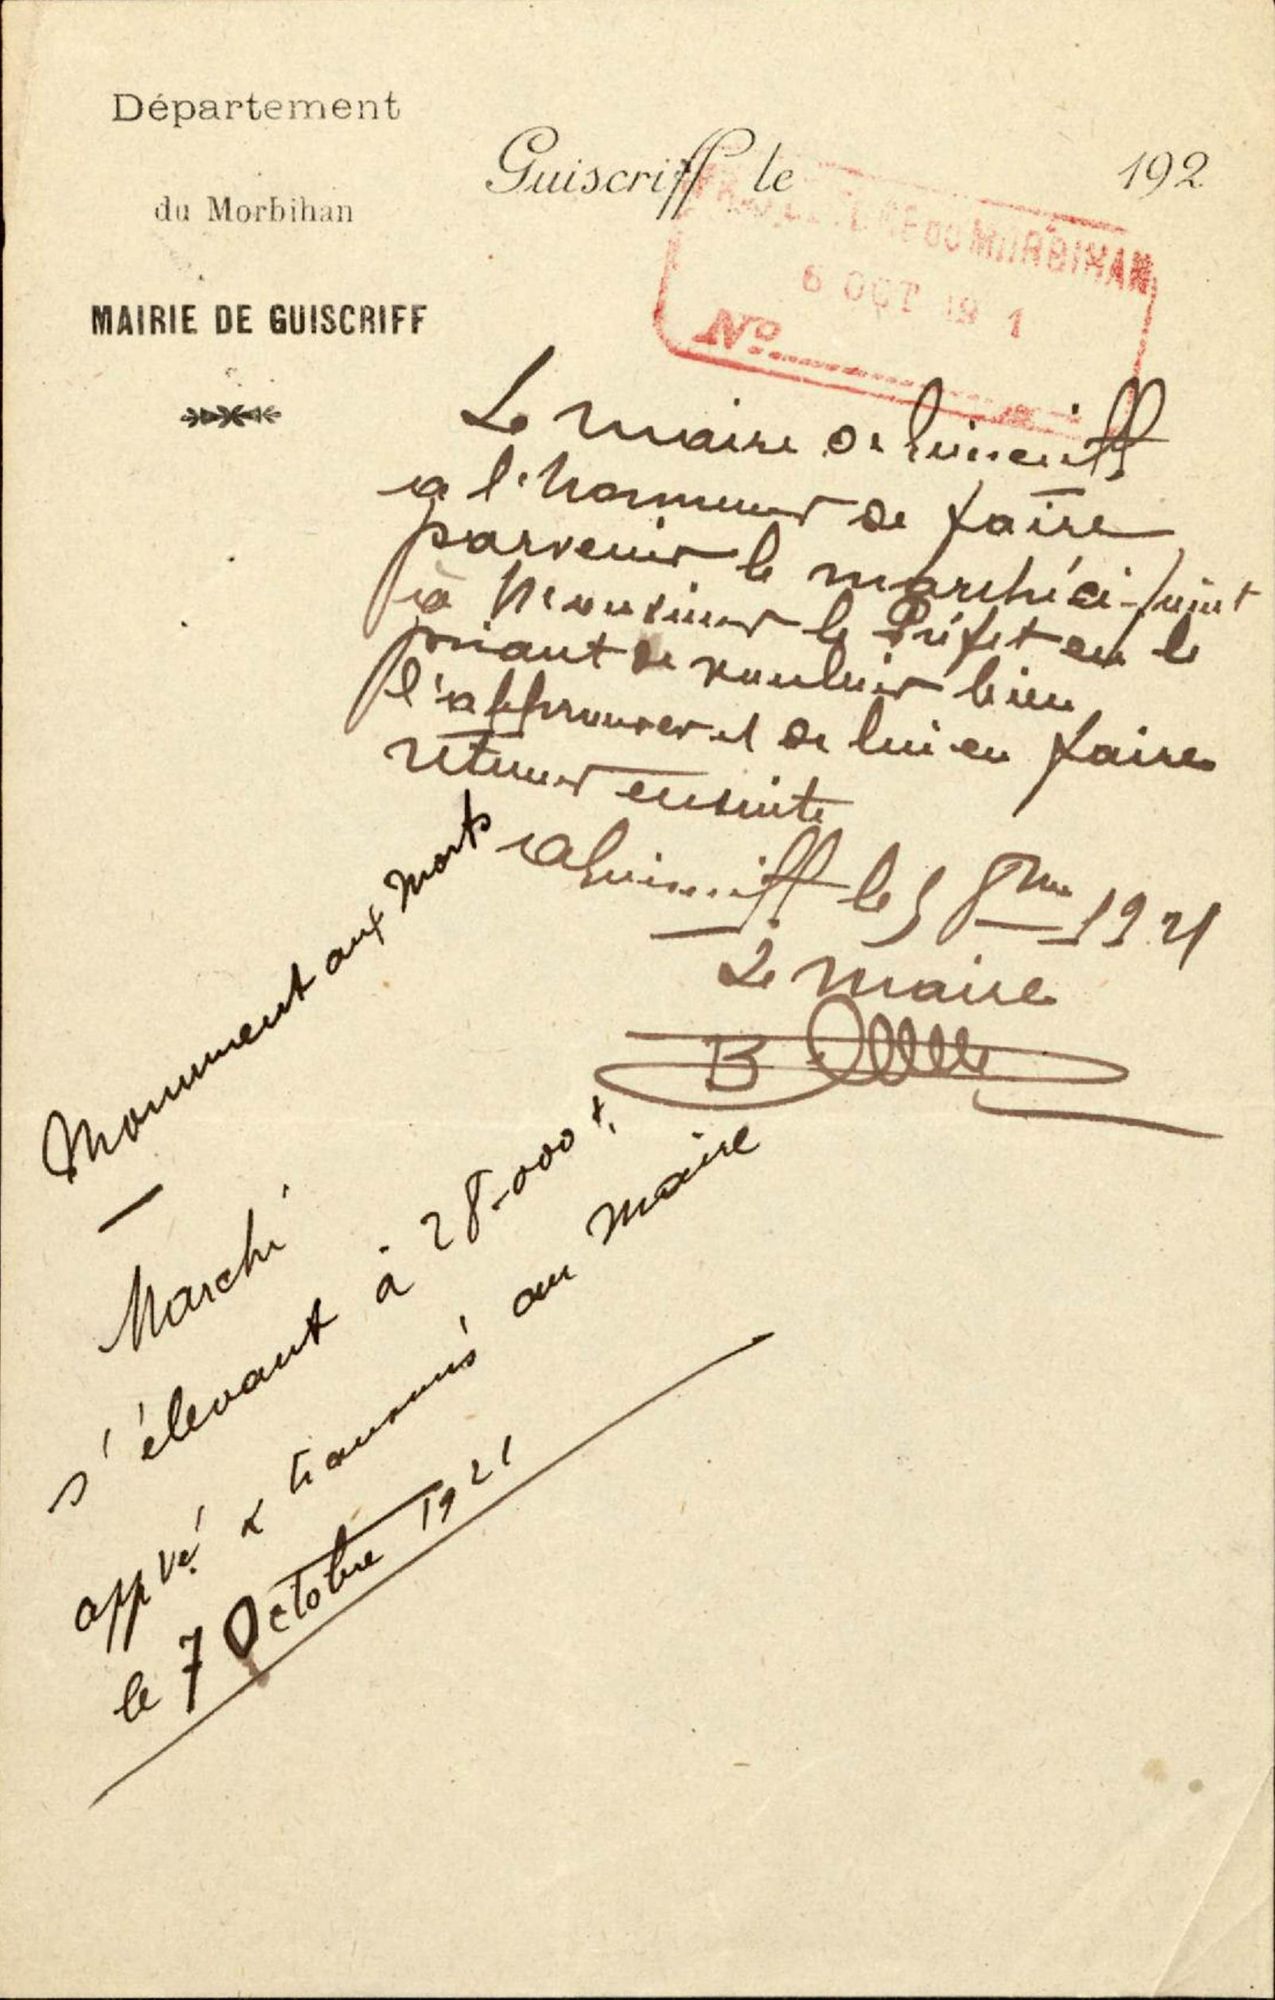 Département
du Morbihan
MAIRIE DE GUISCRIFF
Guiscriff le 192
PREFECTURE DU MORBIHAN
6 OCT 19 1
N°
Le maire de Guiscriff
a l'honneur de faire
parvenir le marché ci-joint
à Monsieur le Préfet en le
priant de vouloir bien
l'approuver et de lui en faire
retour ensuite
A Guiscriff le 5 8bre 1921
Le maire
B
Monument aux Morts
Marché
s'élevant à 28.000 f.
appvé & transmis au Maire
le 7 Octobre 1921